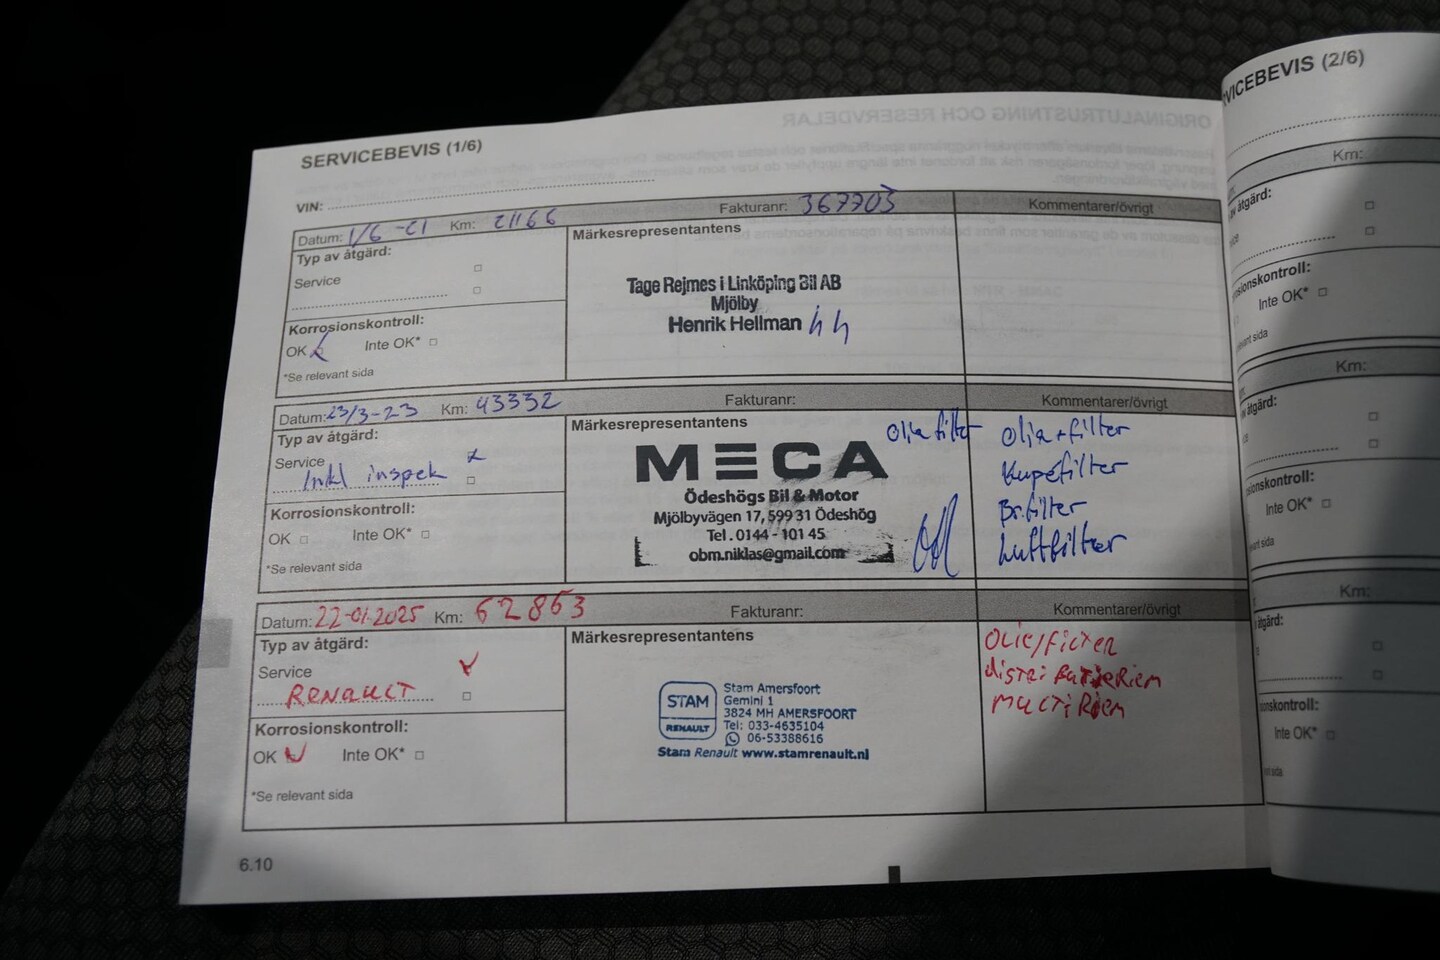 SERVICEBEVIS (1/6)
VIN:
Datum: 1/6 -21 Km: 21166 Fakturanr: 367703 Kommentarer/övrigt
Typ av åtgärd:
Service
Korrosionskontroll:
OK Inte OK*
*Se relevant sida
Märkesrepresentantens
Tage Rejmes i Linköping Bil AB
Mjölby
Henrik Hellman
Datum: 23/3-23 Km: 43332 Fakturanr: Kommentarer/övrigt
Typ av åtgärd:
Service
Inkl inspek
Korrosionskontroll:
OK Inte OK*
*Se relevant sida
Märkesrepresentantens
MECA
Ödeshögs Bil & Motor
Mjölbyvägen 17, 599 31 Ödeshög
Tel. 0144 - 101 45
obm.niklas@gmail.com
Olja filter
Olja+filter
Kupéfilter
Br.filter
Luftfilter
Datum: 22-01-2025 Km: 62863 Fakturanr: Kommentarer/övrigt
Typ av åtgärd:
Service
RENAULT
Korrosionskontroll:
OK Inte OK*
*Se relevant sida
Märkesrepresentantens
STAM
RENAULT
Stam Amersfoort
Gemini 1
3824 MH AMERSFOORT
Tel: 033-4635104
06-53388616
Stam Renault www.stamrenault.nl
OLIE/FILTER
DISTRIBUTIERIEM
MULTIRIEM
6.10
VICEBEVIS (2/6)
Km:
av åtgärd:
Inte OK*
Km:
åtgärd:
Inte OK*
Km:
åtgärd:
Inte OK*